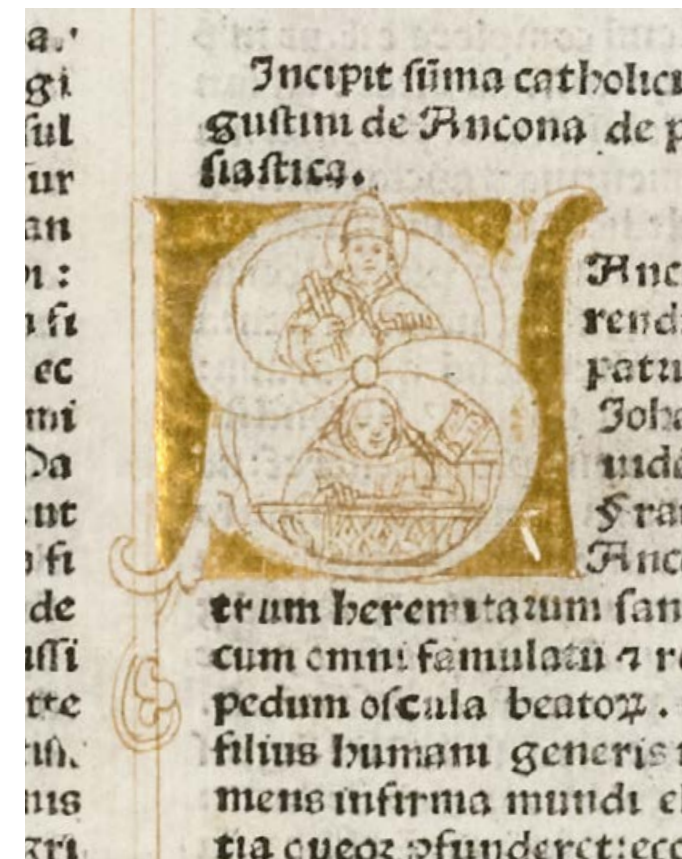 a.
gi
sul
ur
an
si
ec
mi
Da
ut
si
de
ussi
tte
nis
gri
Incipit sūma catholici
gustini de Ancona de p
siastica.
S
Anc
rendi
patri
Joha
uide
Fran
Anco
trum heremitarum san
cum omni famulatu ⁊ re
pedum oscula beatoꝝ.
filius humani generis
mens infirma mundi el
tia queoꝛ ꝓfunderet: ecc